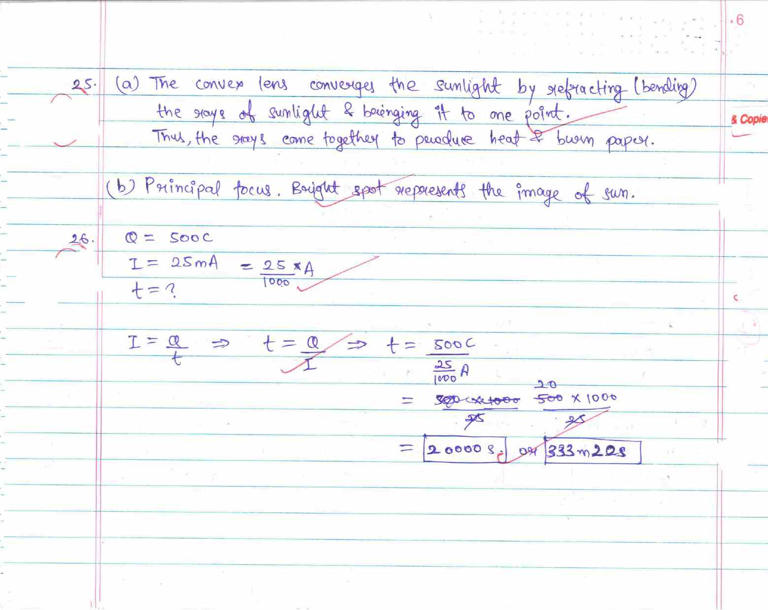 .6
25. (a) The convex lens converges the sunlight by refracting (bending)
the rays of sunlight & bringing it to one point.
& Copie
Thus, the rays come together to produce heat & burn paper.
(b) Principal focus. Bright spot represents the image of sun.
26. Q = 500C
I = 25mA = 25/1000 * A
t = ?
I = Q/t ⇒ t = Q/I ⇒ t = 500C / (25/1000 A)
= 500 x 1000 / 25
20
= 20000 s. or 333m20s